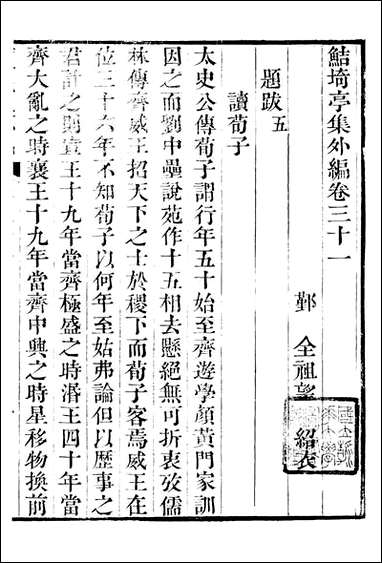 鮚埼亭集外編卷三十一
鄞 全祖望 紹衣
題跋五
讀荀子
太史公傳荀子謂行年五十始至齊遊學顔黃門家訓
因之而劉中壘說苑作十五相去懸絕無可折衷攷儒
林傳齊威王招天下之士於稷下而荀子客焉威王在
位三十六年不知荀子以何年至姑弗論但以歴事之
君計之則宣王十九年當齊極盛之時湣王四十年當
齊大亂之時襄王十九年當齊中興之時星移物換前